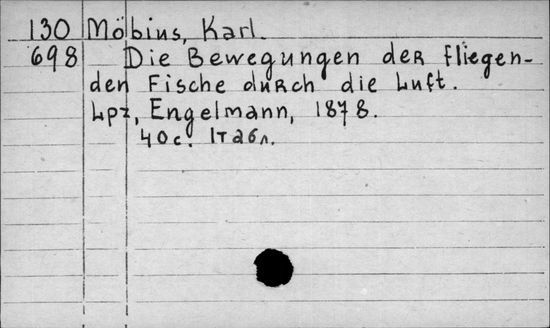 130 Möbius, Karl.
698 Die Bewegungen der fliegen-
den Fische durch die Luft.
Lpz, Engelmann, 1878.
40 c. 1 табл.